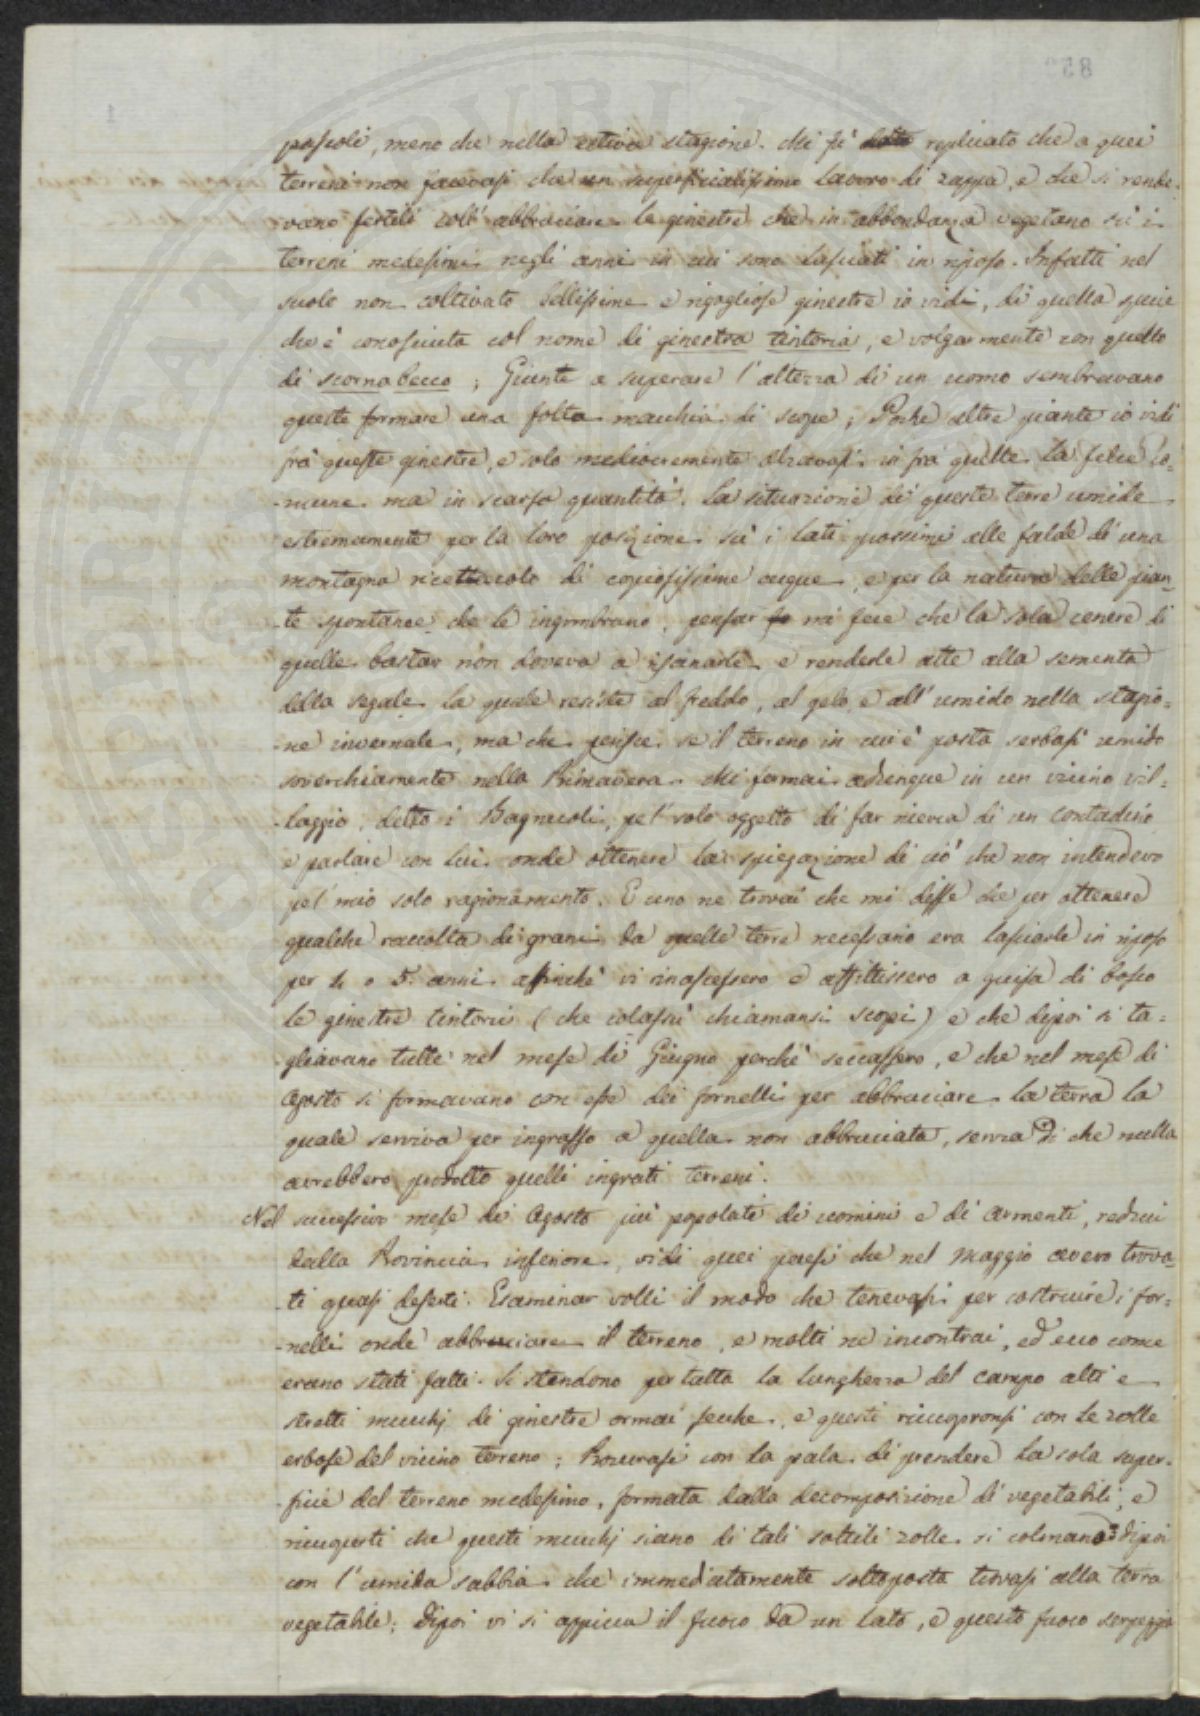 pascoli, meno che nella estiva stagione. Mi fu replicato che a quei
terreni non facevasi che un superficialissimo lavoro di zappa, e che si rende-
vano fertili coll' abbruciare le ginestre che in abbondanza vegetano su i
terreni medesimi negli anni in cui sono lasciati in riposo. Infatti nel
suolo non coltivato bellissime e rigogliose ginestre io vidi, di quella specie
che è conosciuta col nome di ginestra tintoria, e volgarmente con quello
di scornabecco; Giunte a superare l'altezza di un uomo sembravano
queste formare una folta macchia di scope; Poche altre piante io vidi
frà queste ginestre, e solo mediocremente alzavasi in frà quelle la felce co-
-mune ma in scarsa quantità. La situazione di queste terre umide
estremamente per la loro posizione su i lati prossimi alle falde di una
montagna ricettacolo di copiosissime acque, e per la natura delle pian-
-te spontanee che le ingombrano, pensar mi fece che la sola cenere di
quelle bastar non doveva a isanarle e renderle atte alla sementa
della segale la quale resiste al freddo, al gelo, e all' umido nella stagio=
-ne invernale, ma che perisce se il terreno in cui è posta serbasi umido
soverchiamente nella Primavera. Mi fermai adunque in un vicino vil=
-laggio, detto i Bagnuoli, pel solo oggetto di far ricerca di un contadino
e parlare con lui onde ottenere la spiegazione di ciò che non intendevo
pel mio solo ragionamento. E uno ne trovai che mi disse che per ottenere
qualche raccolta di grani da quelle terre necessario era lasciarle in riposo
per 4 o 5 anni affinchè vi rinascessero e affittissero a guisa di bosco
le ginestre tintorie (che colassù chiamansi scopi) e che dipoi si ta=
gliavano tutte nel mese di Giugno perchè seccassero, e che nel mese di
Agosto si formavano con esse dei fornelli per abbruciare la terra la
quale serviva per ingrasso a quella non abbruciata, senza di che nulla
avrebbero prodotto quelli ingrati terreni.
Nel successivo mese di Agosto più popolati di uomini e di armenti, reduci
dalla Provincia inferiore, vidi quei paesi che nel Maggio avevo trova-
-ti quasi deserti. Esaminar volli il modo che tenevasi per costruire i for=
-nelli onde abbruciare il terreno, e molti ne incontrai, ed ecco come
erano stati fatti. Si stendono per tutta la lunghezza del campo alti e
stretti mucchj di ginestre ormai secche, e questi ricuopronsi con le zolle
erbose del vicino terreno; Procurasi con la pala di prendere la sola super-
-ficie del terreno medesimo, formata dalla decomposizione di vegetabili, e
ricuoperti che questi mucchj siano di tali sottili zolle si colmano dipoi
con l'umida sabbia che immediatamente sottoposta trovasi alla terra
vegetabile; dipoi vi si appicca il fuoco da un lato, e questo fuoco serpeggia